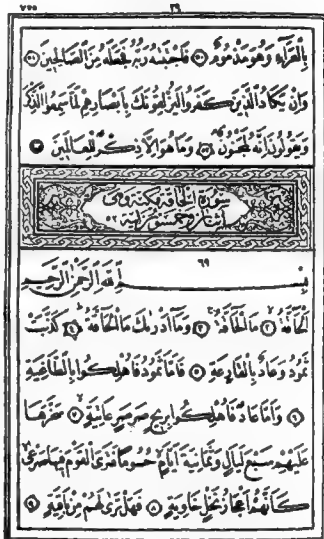 ٧٥٥ ٢٩
بِالْعَرَآءِ وَهُوَ مَذْمُومٌ ﴿٤٩﴾ فَاجْتَبٰىهُ رَبُّهُ فَجَعَلَهُ مِنَ الصَّالِحِينَ ﴿٥٠﴾
وَاِنْ يَكَادُ الَّذِينَ كَفَرُوا لَيُزْلِقُونَكَ بِاَبْصَارِهِمْ لَمَّا سَمِعُوا الذِّكْرَ
وَيَقُولُونَ اِنَّهُ لَمَجْنُونٌ ﴿٥١﴾ وَمَا هُوَ اِلَّا ذِكْرٌ لِلْعَالَمِينَ ﴿٥٢﴾
سورة الحاقة مكية وهي
اثنان وخمسون اية ٥٢
٦٩
بِسْمِ اللّٰهِ الرَّحْمٰنِ الرَّحِيمِ
اَلْحَاقَّةُ ﴿١﴾ مَا الْحَاقَّةُ ﴿٢﴾ وَمَا اَدْرٰيكَ مَا الْحَاقَّةُ ﴿٣﴾ كَذَّبَتْ
ثَمُودُ وَعَادٌ بِالْقَارِعَةِ ﴿٤﴾ فَاَمَّا ثَمُودُ فَاُهْلِكُوا بِالطَّاغِيَةِ
﴿٥﴾ وَاَمَّا عَادٌ فَاُهْلِكُوا بِرِيحٍ صَرْصَرٍ عَاتِيَةٍ ﴿٦﴾ سَخَّرَهَا
عَلَيْهِمْ سَبْعَ لَيَالٍ وَثَمَانِيَةَ اَيَّامٍ حُسُومًا فَتَرَى الْقَوْمَ فِيهَا صَرْعٰى
كَاَنَّهُمْ اَعْجَازُ نَخْلٍ خَاوِيَةٍ ﴿٧﴾ فَهَلْ تَرٰى لَهُمْ مِنْ بَاقِيَةٍ ﴿٨﴾